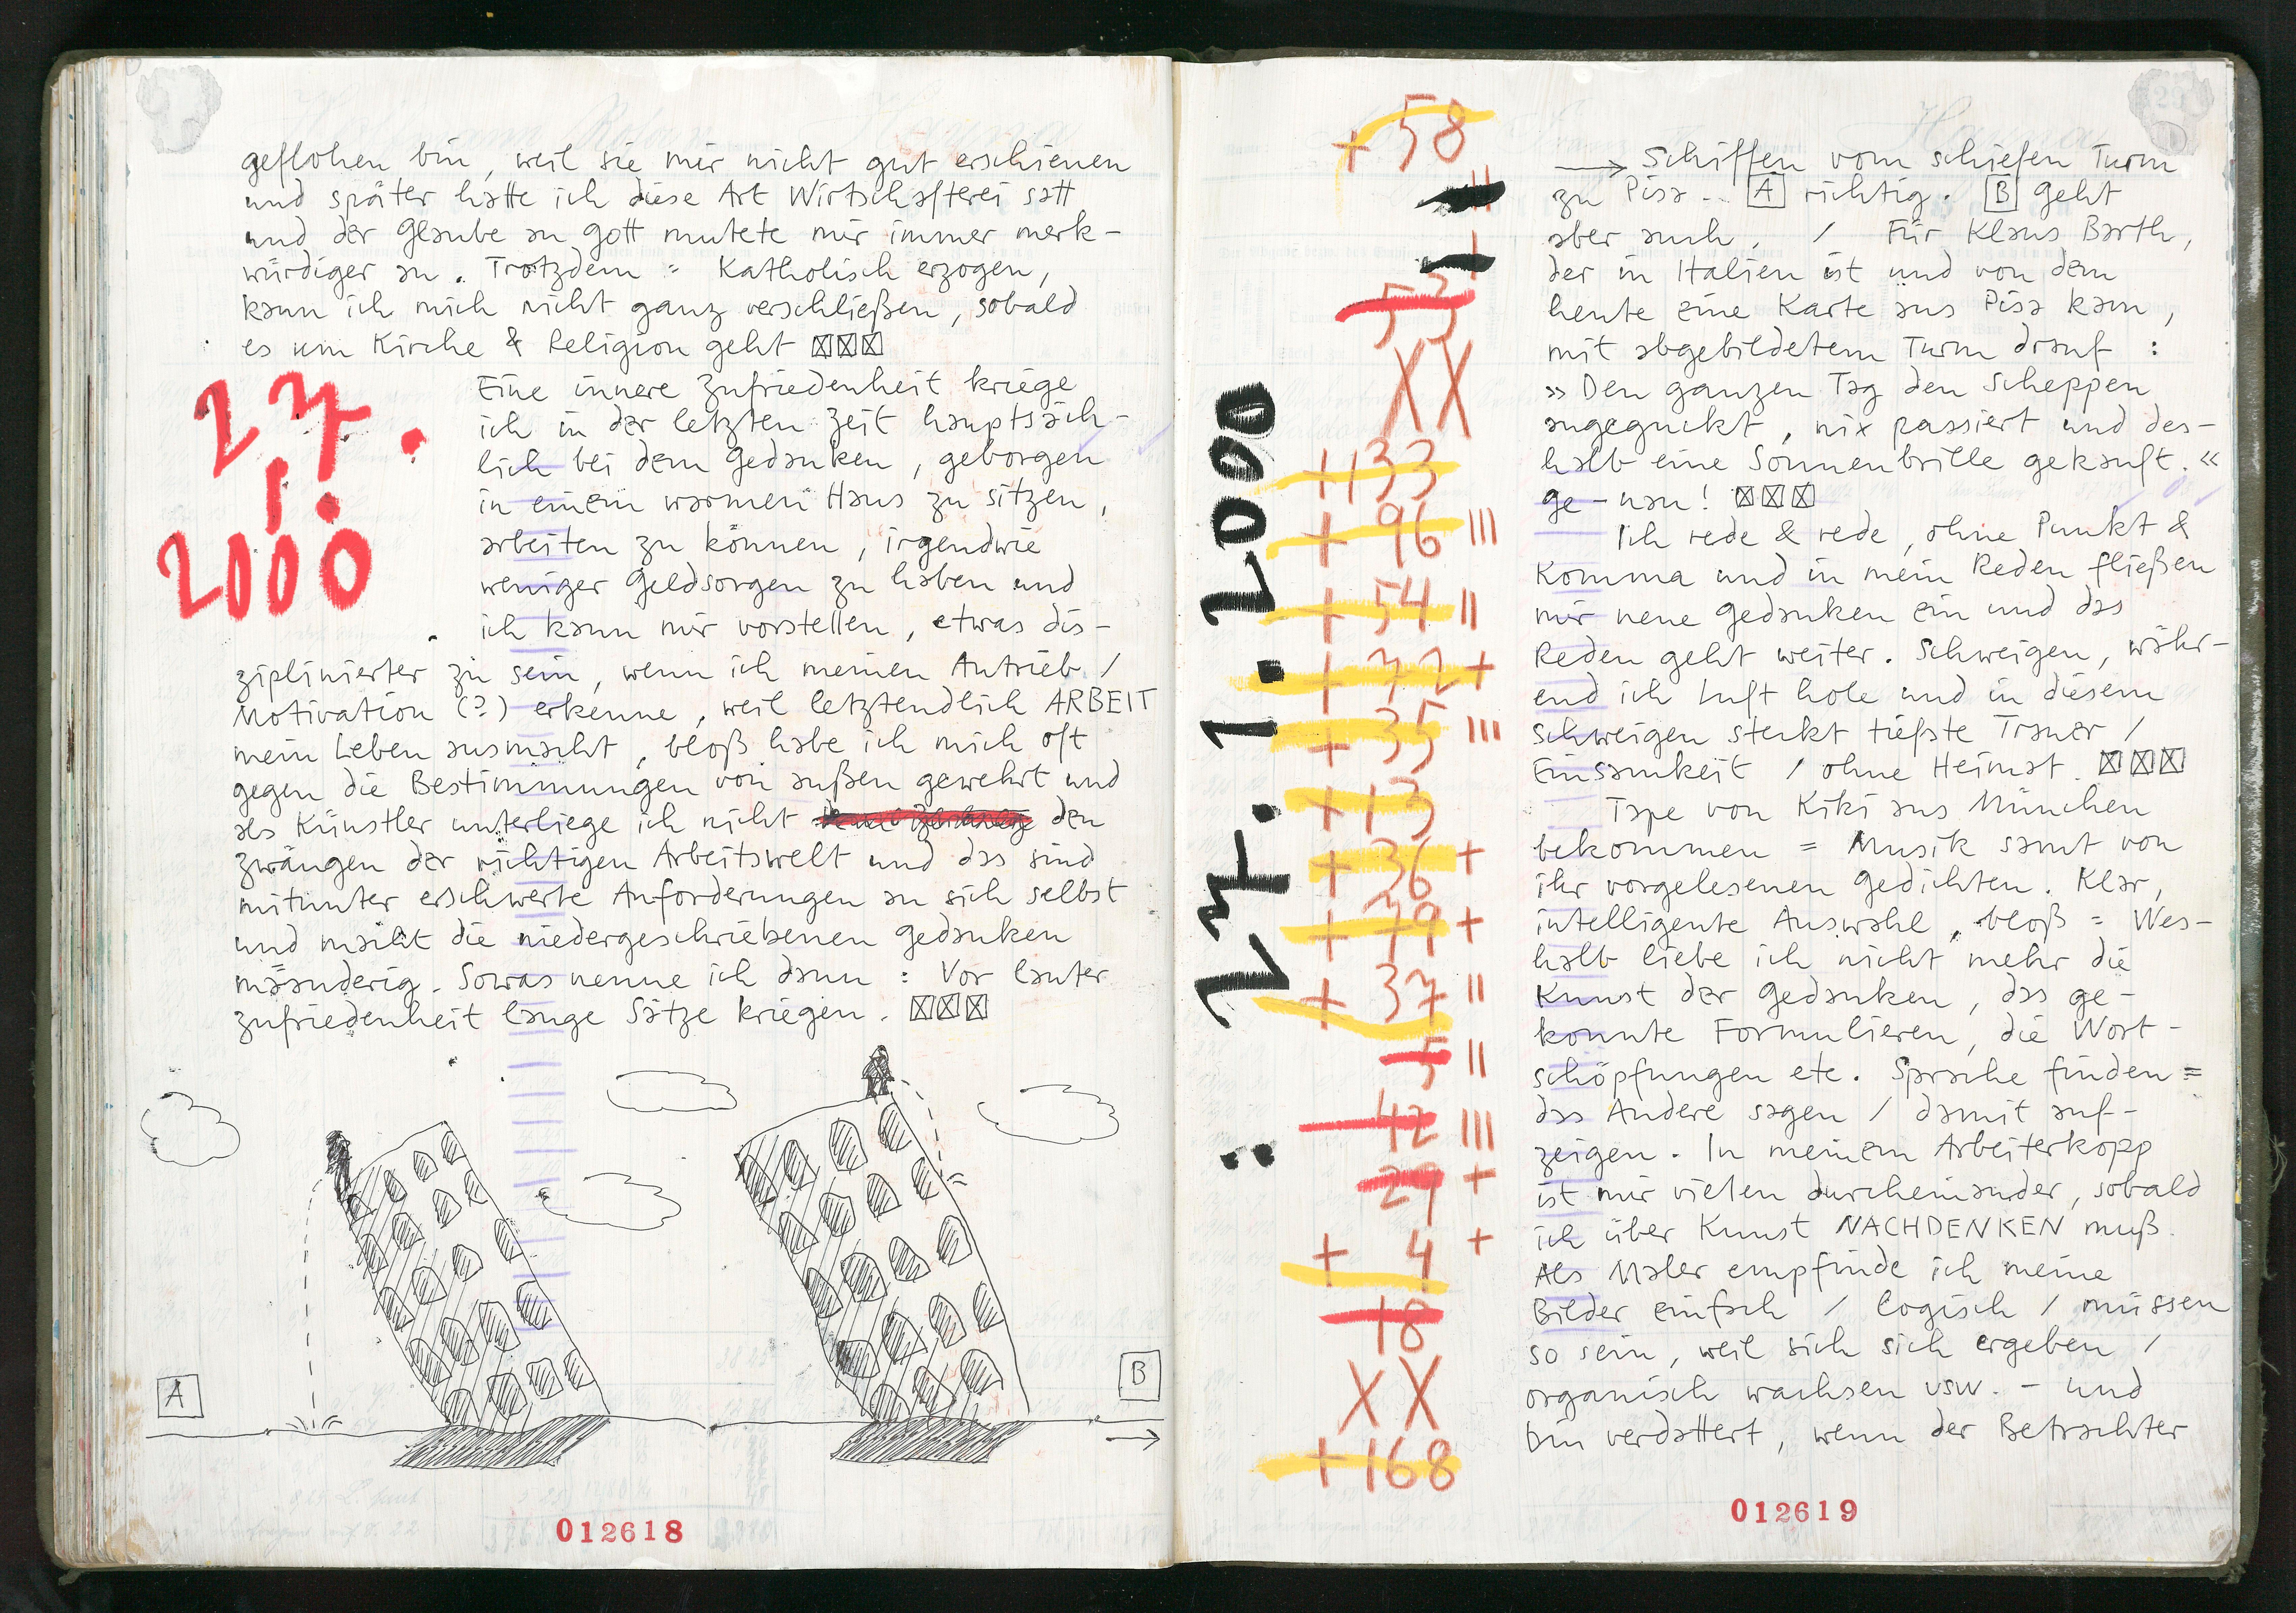 geflohen bin, weil sie mir nicht gut erschienen
und später hatte ich diese Art Wirtschafterei satt
und der Glaube an Gott mutete mir immer merk-
würdiger an. Trotzdem = Katholisch erzogen,
kann ich mich nicht ganz verschließen, sobald
es um Kirche & Religion geht ☒☒☒
27.
1.
2000
Eine innere Zufriedenheit kriege
ich in der letzten Zeit hauptsäch-
lich bei dem Gedanken, geborgen
in einem warmen Haus zu sitzen,
arbeiten zu können, irgendwie
weniger Geldsorgen zu haben und
ich kann mir vorstellen, etwas dis-
ziplinierter zu sein, wenn ich meinen Antrieb /
Motivation (?) erkenne, weil letztendlich ARBEIT
mein Leben ausmacht, bloß habe ich mich oft
gegen die Bestimmungen von außen gewehrt und
als Künstler unterliege ich nicht den
Zwängen der richtigen Arbeitswelt und das sind
mitunter erschwerte Anforderungen an sich selbst
und macht die niedergeschriebenen Gedanken
mäanderig. Sowas nenne ich dann : Vor lauter
Zufriedenheit lange Sätze kriegen. ☒☒☒
A
B
012618
: 27. 1. 2000
+ 58
53
XX
+133
+ 96 |||
+ 54 ||
+ 72 +
+ 35 |||
+13
+ 36 +
+ 79 +
+ 37 ||
5 ||
42 |||
29 +
+ 4 +
18
XX
+168
→ Schiffen vom schiefen Turm
zu Pisa.. A richtig. B geht
aber auch. / Für Klaus Barth,
der in Italien ist und von dem
heute eine Karte aus Pisa kam,
mit abgebildetem Turm drauf :
»Den ganzen Tag den Scheppen
angeguckt, nix passiert und des-
halb eine Sonnenbrille gekauft.«
ge-nau! ☒☒☒
Ich rede & rede, ohne Punkt &
Komma und in mein Reden fließen
mir neue Gedanken ein und das
Reden geht weiter. Schweigen, währ-
end ich Luft hole und in diesem
Schweigen steckt tiefste Trauer /
Einsamkeit / ohne Heimat. ☒☒☒
Tape von Kiki aus München
bekommen = Musik samt von
ihr vorgelesenen Gedichten. Klar,
intelligente Auswahl, bloß = Wes-
halb liebe ich nicht mehr die
Kunst der Gedanken, das ge-
konnte Formulieren, die Wort-
schöpfungen etc. Sprache finden =
das Andere sagen / damit auf-
zeigen. In meinem Arbeiterkopp
ist mir vielen durcheinander, sobald
ich über Kunst NACHDENKEN muß.
Als Maler empfinde ich meine
Bilder einfach / logisch / müssen
so sein, weil sich sich ergeben /
organisch wachsen usw. - und
bin verdattert, wenn der Betrachter
012619